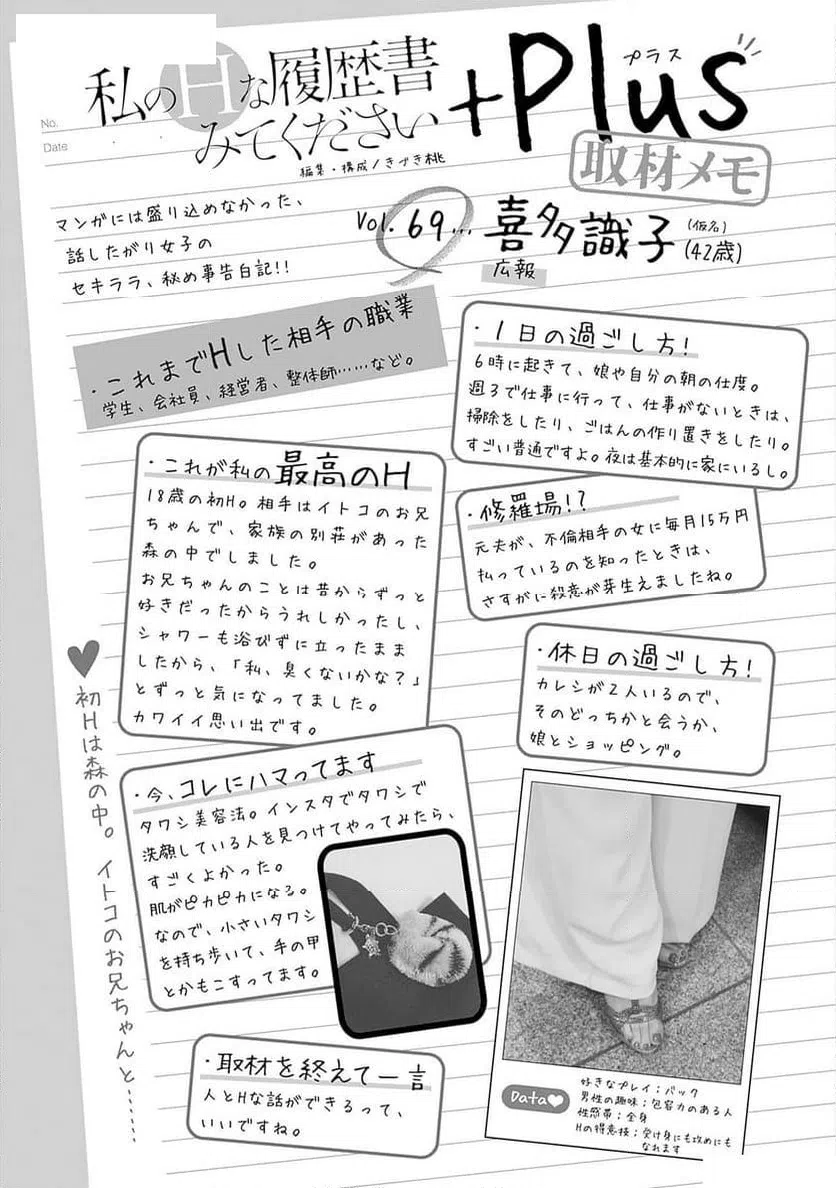 No.
Date
私のHな履歴書
みてください
+Plus
プラス
取材メモ
編集・構成/きづき桃
マンガには盛り込めなかった、
話したがり女子の
セキララ、秘め事告白記!!
Vol.69… 喜多識子
(仮名)
(42歳)
広報
・これまでHした相手の職業
学生、会社員、経営者、整体師……など。
・1日の過ごし方!
6時に起きて、娘や自分の朝の仕度。
週3で仕事に行って、仕事がないときは、
掃除をしたり、ごはんの作り置きをしたり。
すごい普通ですよ。夜は基本的に家にいるし。
・これが私の最高のH
18歳の初H。相手はイトコのお兄
ちゃんで、家族の別荘があった
森の中でしました。
お兄ちゃんのことは昔からずっと
好きだったからうれしかったし、
シャワーも浴びずに立ったまま
したから、「私、臭くないかな?」
とずっと気になってました。
カワイイ思い出です。
・修羅場!?
元夫が、不倫相手の女に毎月15万円
払っているのを知ったときは、
さすがに殺意が芽生えましたね。
・休日の過ごし方!
カレシが2人いるので、
そのどっちかと会うか、
娘とショッピング。
♥初Hは森の中。イトコのお兄ちゃんと……
・今、コレにハマってます
タワシ美容法。インスタでタワシで
洗顔している人を見つけてやってみたら、
すごくよかった。
肌がピカピカになる。
なので、小さいタワシ
を持ち歩いて、手の甲
とかもこすってます。
・取材を終えて一言
人とHな話ができるって、
いいですね。
Data♥
好きなプレイ;バック
男性の趣味;包容力のある人
性感帯;全身
Hの得意技;受け身にも攻めにも
なれます